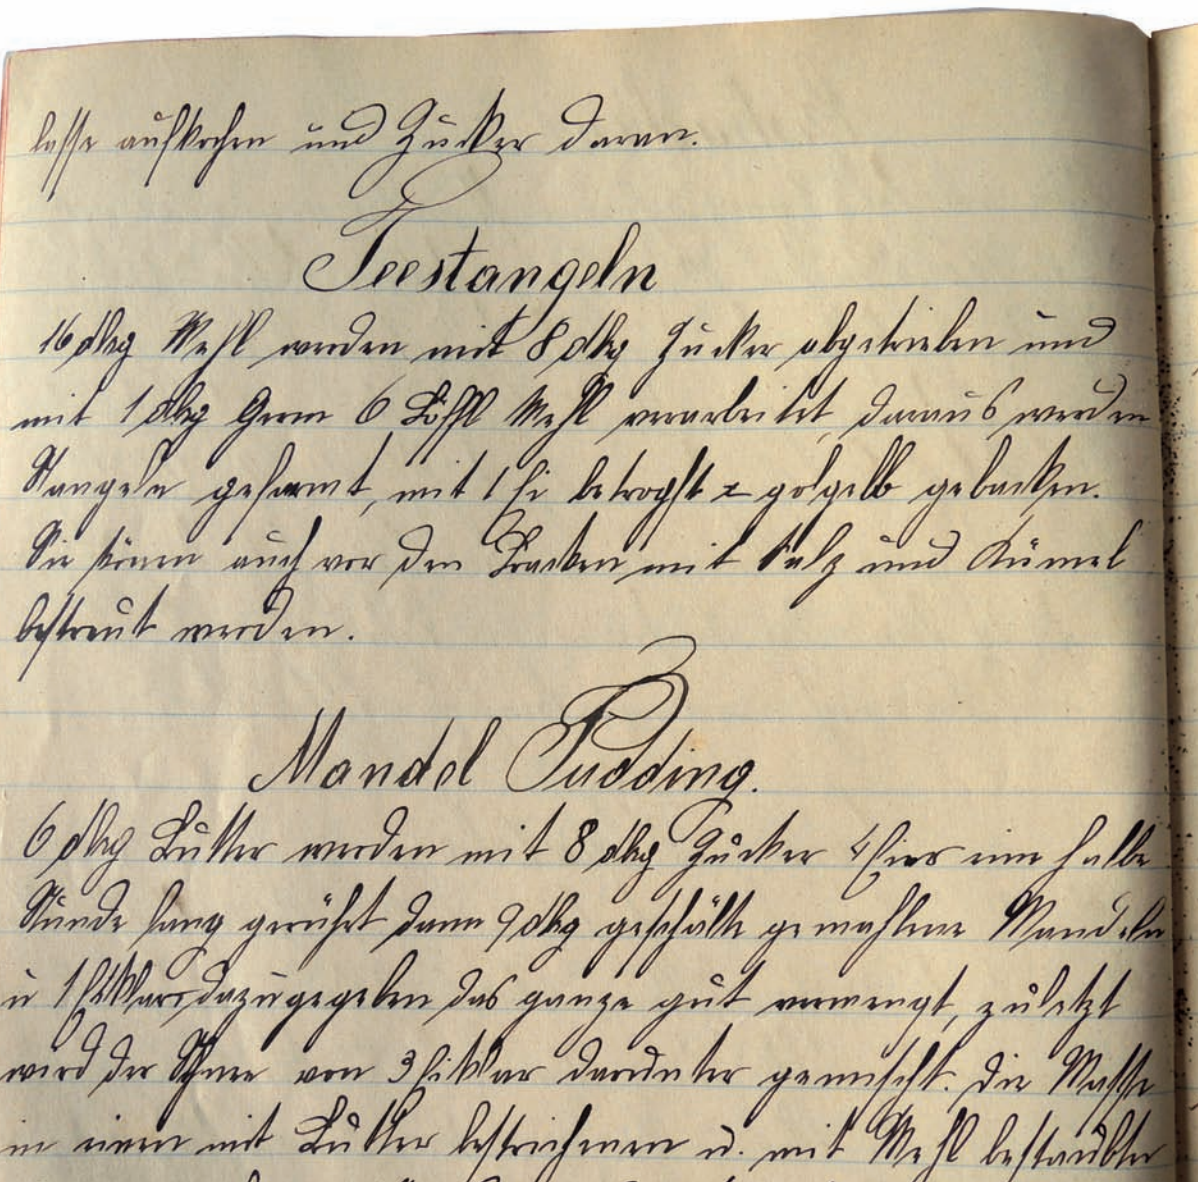 lasse aufkochen und Zucker daran.
Teestangeln
16 dkg Mehl werden mit 8 dkg Zucker abgetrieben und
mit 1 dkg Germ 6 Löffl Mehl verarbeitet, daraus werden
Stangeln geformt, mit 1 Ei betropft golgelb gebacken.
Sie könen auch vor den Backen mit Salz und Kümel
bestreut werden.
Mandel Pudding.
6 dkg Butter werden mit 8 dkg Zucker 4 Eier eine halbe
Stunde lang gerührt dann 9 dkg geschälte gemahlene Mandeln
u 1 dazugegeben das ganze gut vermengt, zuletzt
wird der Schnee von 3 Eiklar darunter gemischt. Die Masse
in einen mit Butter bestrichenen u. mit Mehl bestaubten